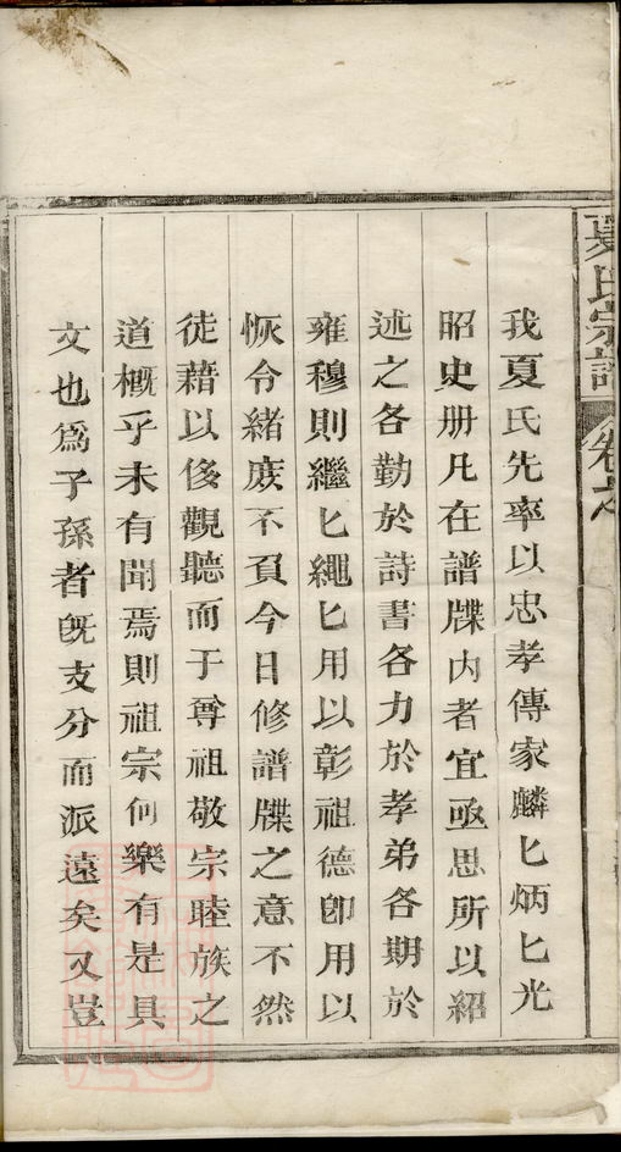 夏氏宗譜 卷之
我夏氏先率以忠孝傳家麟匕炳匕光
昭史册凡在譜牒内者宜亟思所以紹
述之各勤於詩書各力於孝弟各期於
雍穆則繼匕繩匕用以彰祖德卽用以
恢令緒庻不負今日修譜牒之意不然
徒藉以侈觀聽而于尊祖敬宗睦族之
道概乎未有聞焉則祖宗何樂有是具
文也爲子孫者旣支分而派遠矣又豈